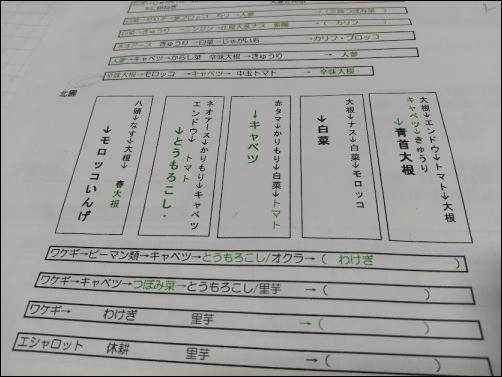 白菜→ブロッコリー→春ブロッコ　カリフ→人参　→（三陸つぼみ菜）
白菜→きゅうり→ニンジン→住屋大長ナス　紫園　→（　カリフ　）
ネオアース　きゅうり→白菜→じゃがいも　→カリフ・ブロッコ
人参→キャベツ→からし菜　辛味大根→きゅうり→　人参
辛味大根→モロッコ　→キャベツ→　中玉トマト　→　辛味大根
北圃
八頭→なす→大根→　春大根
→モロッコいんげ
ネオアース→かりもり→キャベツ
エンドウ→　トマト
→とうもろこし・
赤タマ→かりもり→白菜→トマト
→キャベツ
大根→ナス→白菜→モロッコ
→白菜
大根→エンドウ→トマト→大根
キャベツ→きゅうり
→青首大根
ワケギ→ピーマン類→キャベツ→とうもろこし/オクラ→（　わけぎ　）
ワケギ→キャベツ→つぼみ菜→とうもろこし/里芋　→（　）
ワケギ→　わけぎ　里芋　→（　）
エシャロット　休耕　里芋　→（　）